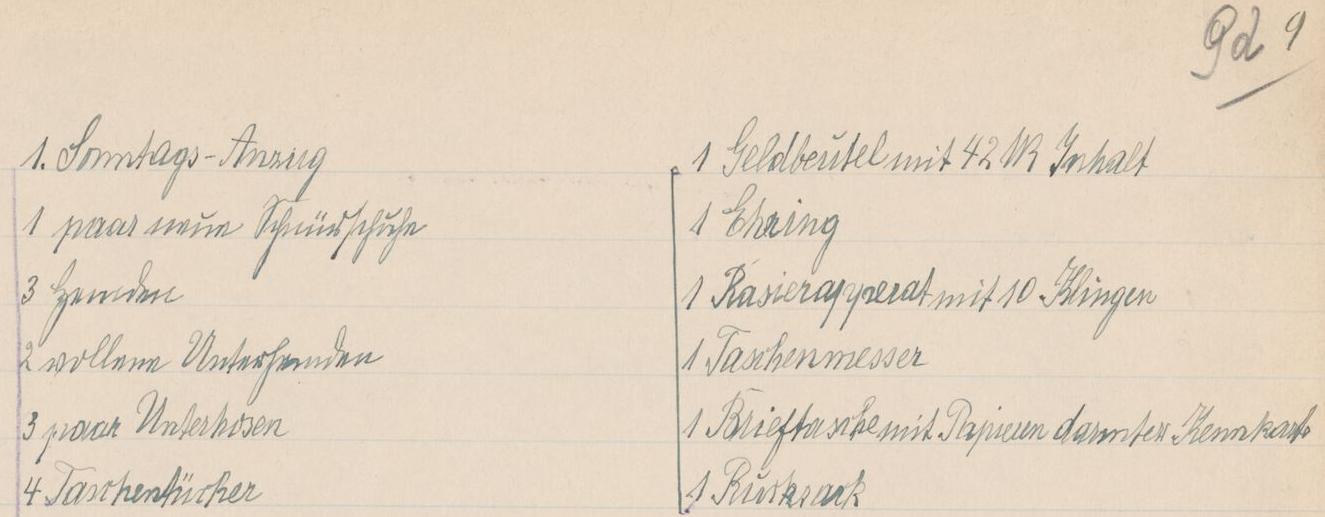 Gd 9
1. Sonntags-Anzug
1 paar neue Schnürschuhe
3 Hemden
2 wollene Unterhemden
3 paar Unterhosen
4 Taschentücher
1 Geldbeutel mit 42 M Inhalt
1 Ehring
1 Rasierapperat mit 10 Klingen
1 Taschenmesser
1 Brieftasche mit Papieren darunter Kennkarte
1 Rucksack